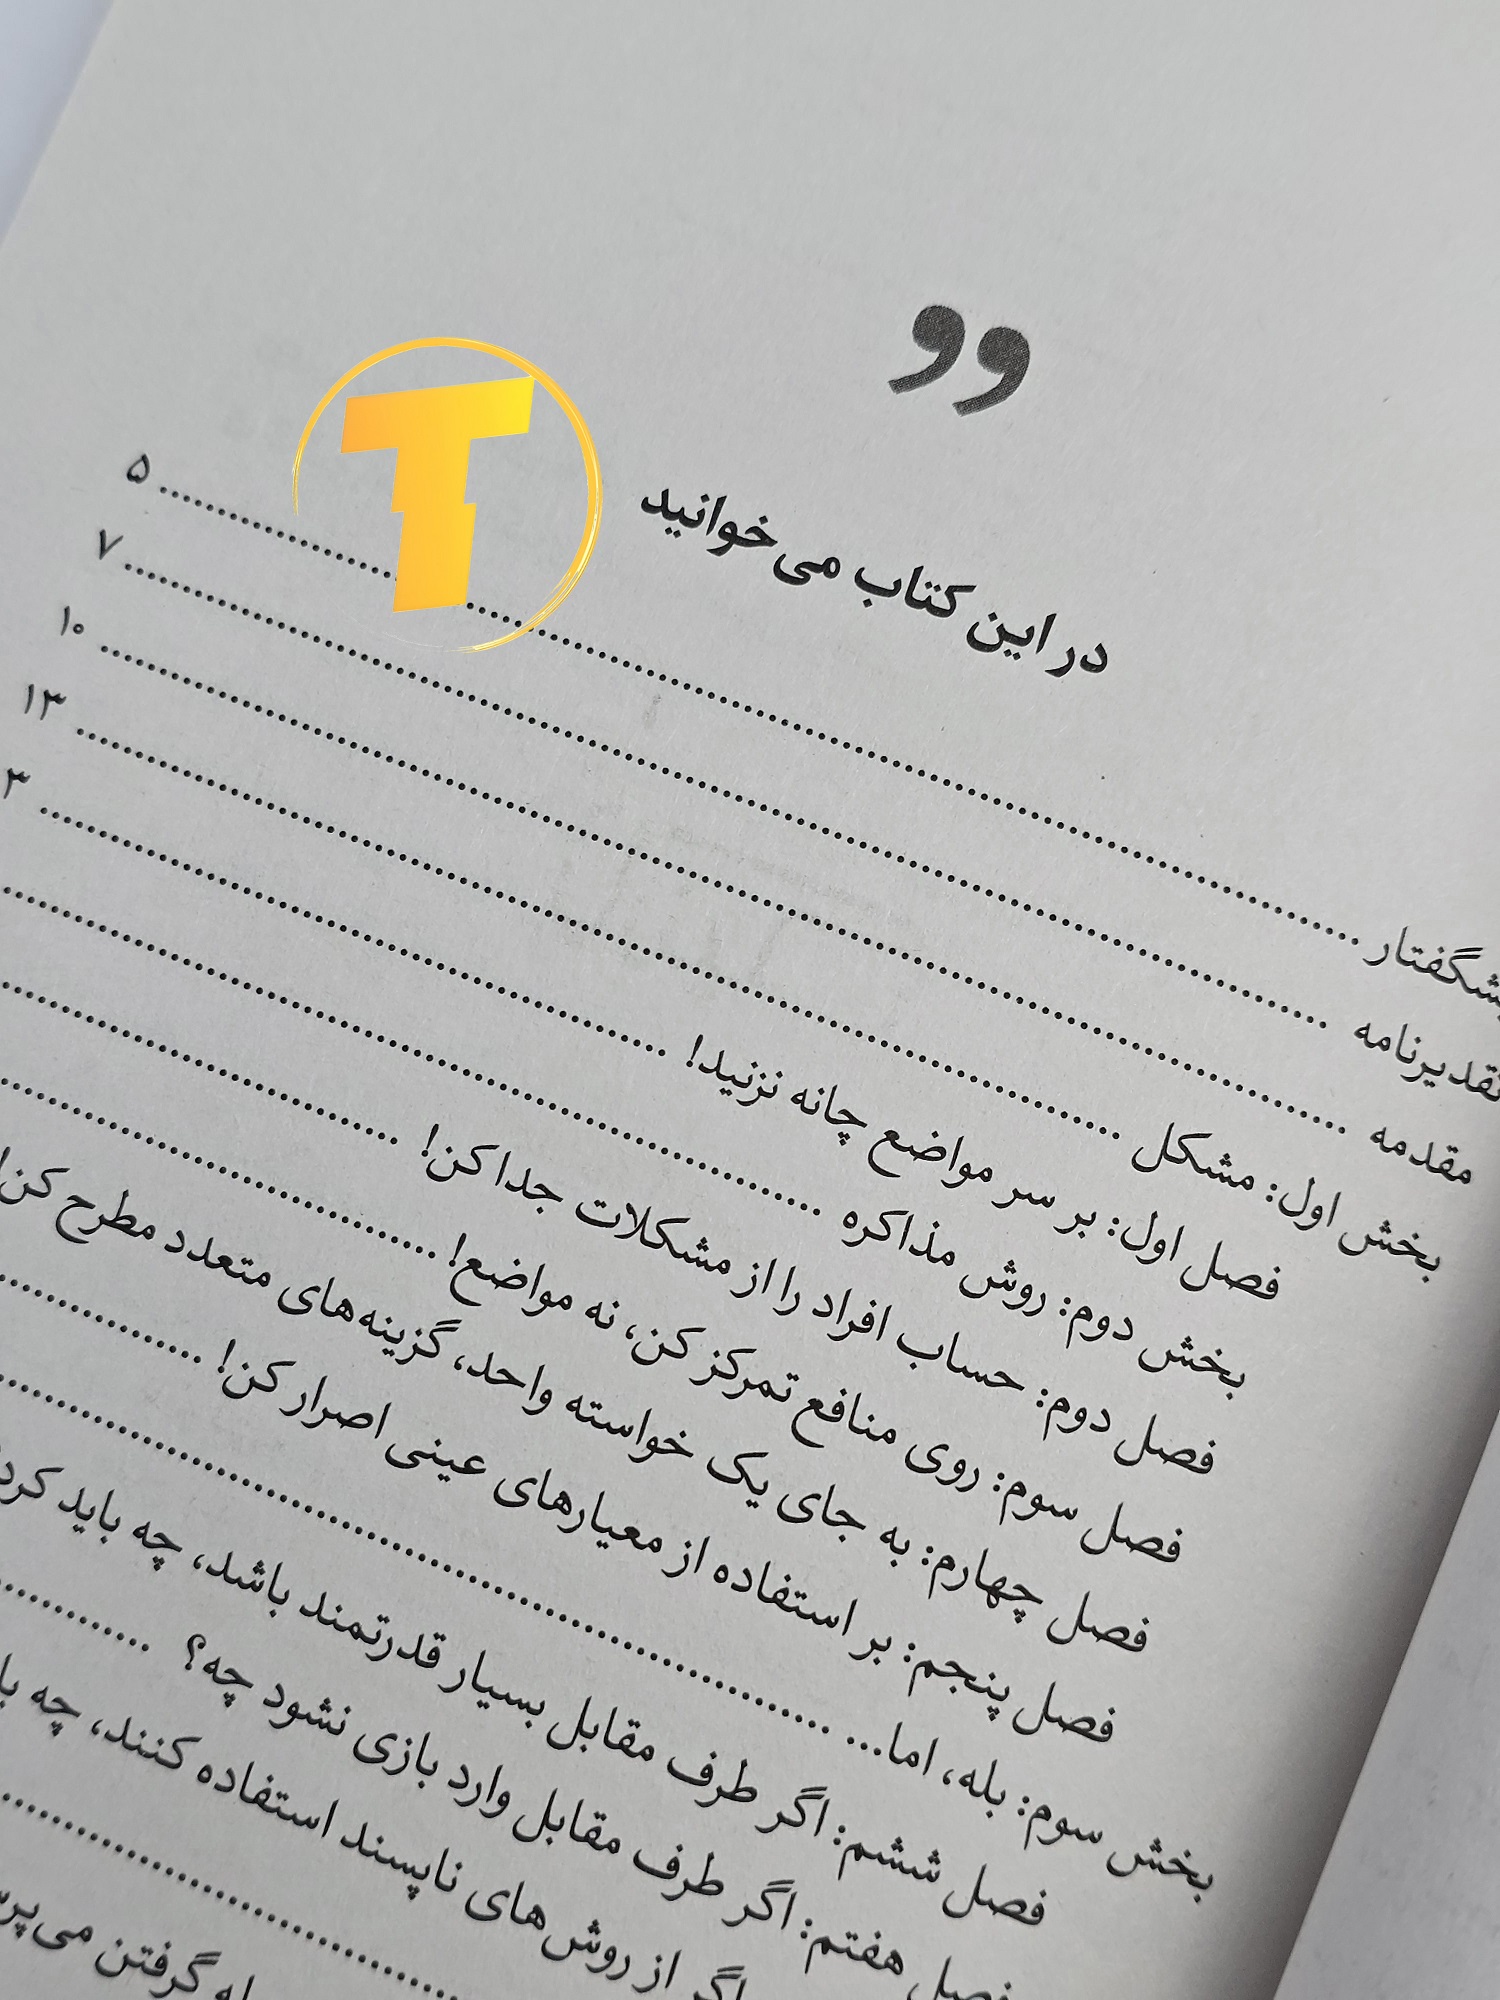 در این کتاب می‌خوانید
۵
تقدیرنامه ۷
مقدمه ۱۰
بخش اول: مشکل ۱۳
فصل اول: بر سر مواضع چانه نزنید!
بخش دوم: روش مذاکره
فصل دوم: حساب افراد را از مشکلات جدا کن!
فصل سوم: روی منافع تمرکز کن، نه مواضع!
فصل چهارم: به جای یک خواسته واحد، گزینه‌های متعدد مطرح کن!
فصل پنجم: بر استفاده از معیارهای عینی اصرار کن!
بخش سوم: بله، اما...
فصل ششم: اگر طرف مقابل بسیار قدرتمند باشد، چه باید
فصل هفتم: اگر طرف مقابل وارد بازی نشود چه؟
از روش‌های ناپسند استفاده کنند، چه
گرفتن
T